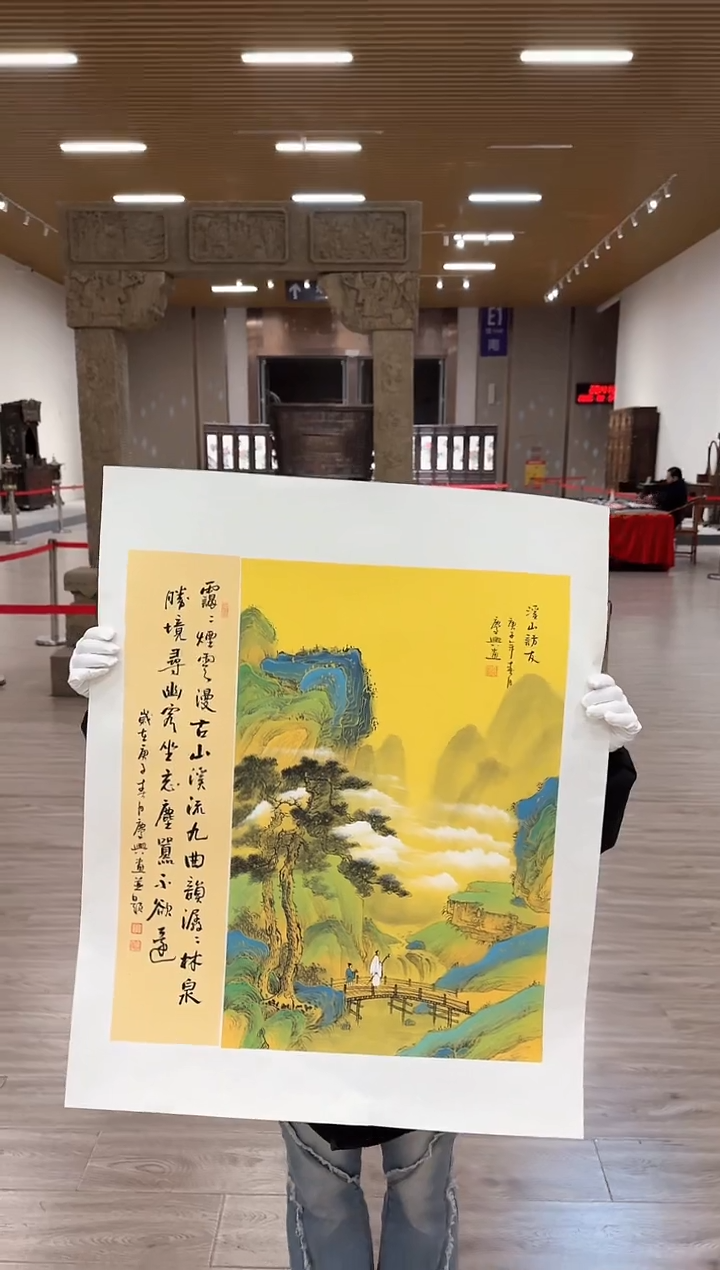 E1
南
溪山訪友
庚子年春月
慶興畫
靄〻煙雲漫古山溪流九曲韻潺〻林泉
勝境尋幽客坐忘塵囂不欲還
歲在庚子春月慶興畫並題